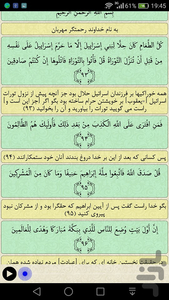 19:45
بسم الله الرحمن الرحیم
به نام خداوند رحمتگر مهربان
كُلُّ الطَّعَامِ كَانَ حِلًّا لِبَنِي إِسْرَائِيلَ إِلَّا مَا حَرَّمَ إِسْرَائِيلُ عَلَى نَفْسِهِ
مِنْ قَبْلِ أَنْ تُنَزَّلَ التَّوْرَاةُ قُلْ فَأْتُوا بِالتَّوْرَاةِ فَاتْلُوهَا إِنْ كُنْتُمْ صَادِقِينَ
﴿٩٣﴾
همه خوراکیها بر فرزندان اسرائیل حلال بود جز آنچه پیش از نزول تورات
اسرائیل [یعقوب] بر خویشتن حرام ساخته بود بگو اگر [جز این است و]
راست می گویید تورات را بیاورید و آن را بخوانید (۹۳)
فَمَنِ افْتَرَى عَلَى اللَّهِ الْكَذِبَ مِنْ بَعْدِ ذَلِكَ فَأُولَئِكَ هُمُ الظَّالِمُونَ
﴿٩٤﴾
پس کسانی که بعد از این بر خدا دروغ بندند آنان خود ستمکارانند (۹۴)
قُلْ صَدَقَ اللَّهُ فَاتَّبِعُوا مِلَّةَ إِبْرَاهِيمَ حَنِيفًا وَمَا كَانَ مِنَ الْمُشْرِكِينَ
﴿٩٥﴾
بگو خدا راست گفت پس از آیین ابراهیم که حقگرا بود و از مشرکان نبود
پیروی کنید (۹۵)
إِنَّ أَوَّلَ بَيْتٍ وُضِعَ لِلنَّاسِ لَلَّذِي بِبَكَّةَ مُبَارَكًا وَهُدًى لِلْعَالَمِينَ
﴿٩٦﴾